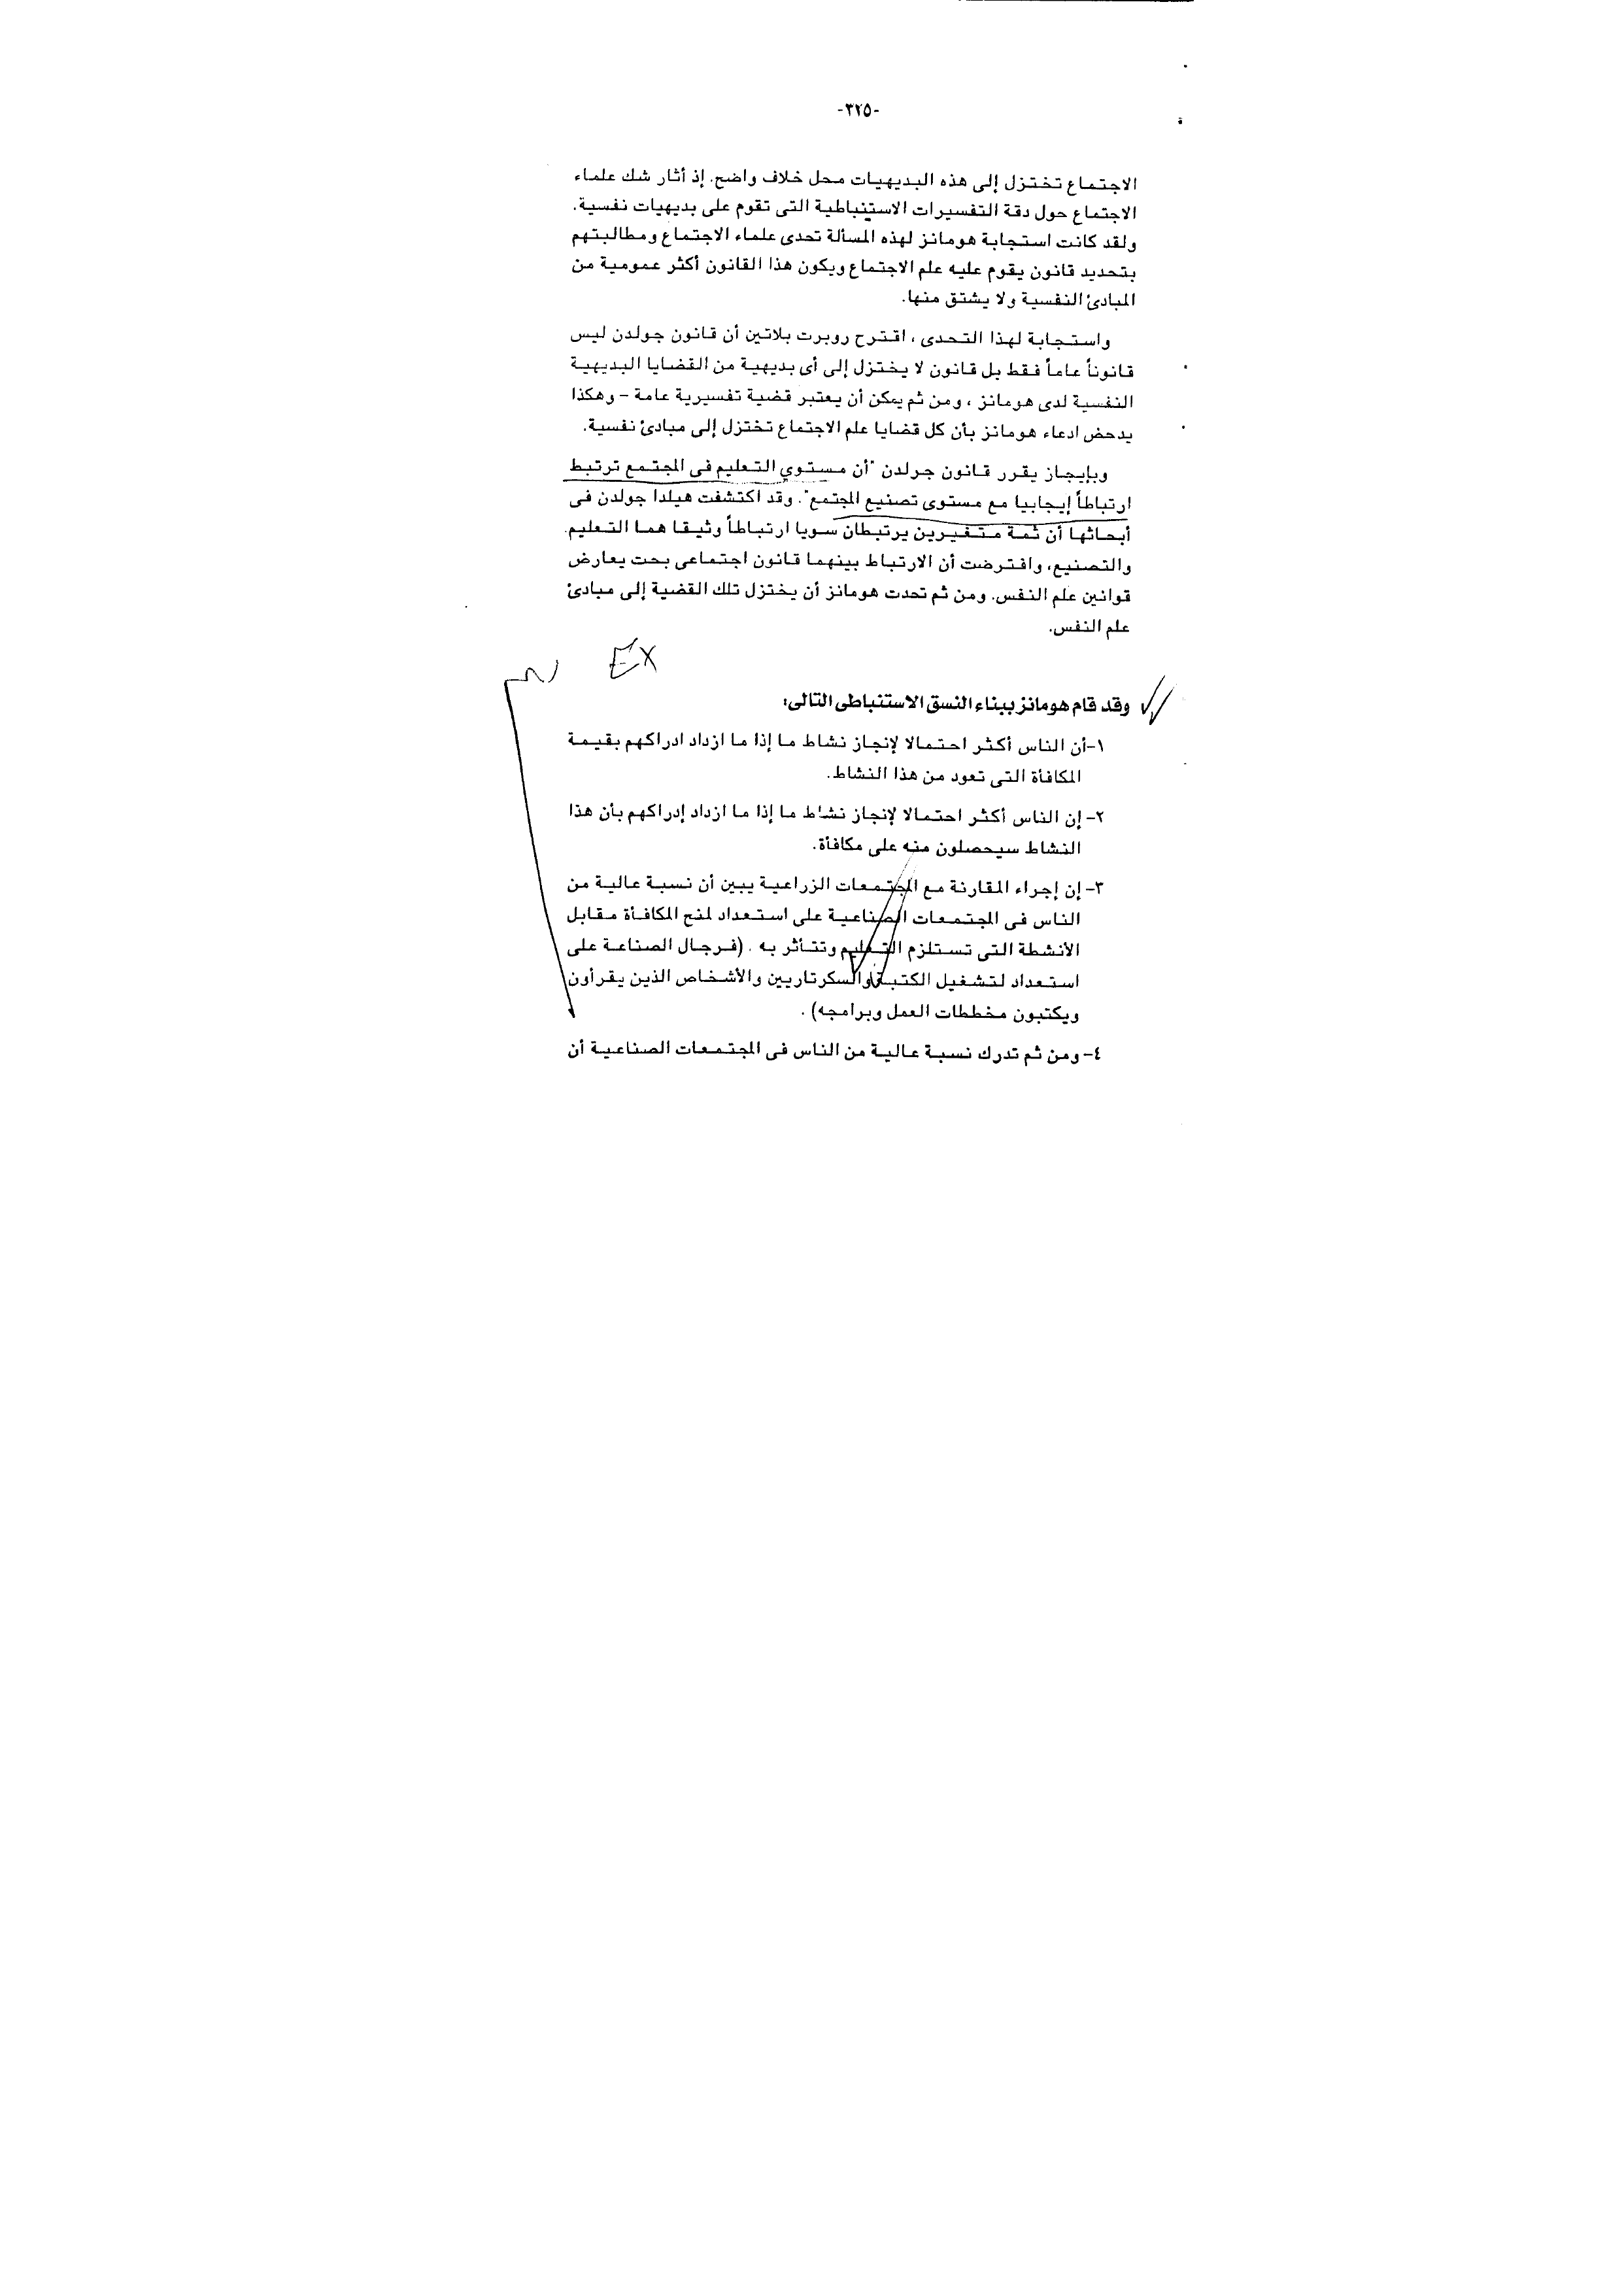 -٣٢٥-
الاجتماع تختزل إلى هذه البديهيات محل خلاف واضح. إذ أثار شك علماء
الاجتماع حول دقة التفسيرات الاستنباطية التى تقوم على بديهيات نفسية.
ولقد كانت استجابة هومانز لهذه المسألة تحدى علماء الاجتماع ومطالبتهم
بتحديد قانون يقوم عليه علم الاجتماع ويكون هذا القانون أكثر عمومية من
المبادئ النفسية ولا يشتق منها.
واستجابة لهذا التحدى ، اقترح روبرت بلاتين أن قانون جولدن ليس
قانوناً عاماً فقط بل قانون لا يختزل إلى أى بديهية من القضايا البديهية
النفسية لدى هومانز ، ومن ثم يمكن أن يعتبر قضية تفسيرية عامة - وهكذا
يدحض ادعاء هومانز بأن كل قضايا علم الاجتماع تختزل إلى مبادئ نفسية.
وبإيجاز يقرر قانون جرلدن "أن مستوي التعليم فى المجتمع ترتبط
ارتباطاً إيجابيا مع مستوى تصنيع المجتمع". وقد اكتشفت هيلدا جولدن فى
أبحاثها أن ثمة متغيرين يرتبطان سويا ارتباطاً وثيقا هما التعليم
والتصنيع، وافترضت أن الارتباط بينهما قانون اجتماعى بحت يعارض
قوانين علم النفس. ومن ثم تحدت هومانز أن يختزل تلك القضية إلى مبادئ
علم النفس.
EX
وقد قام هومانز ببناء النسق الاستنباطى التالى:
١-أن الناس أكثر احتمالا لإنجاز نشاط ما إذا ما ازداد ادراكهم بقيمة
المكافأة التى تعود من هذا النشاط.
٢- إن الناس أكثر احتمالا لإنجاز نشاط ما إذا ما ازداد إدراكهم بأن هذا
النشاط سيحصلون منه على مكافأة.
٣- إن إجراء المقارنة مع المجتمعات الزراعية يبين أن نسبة عالية من
الناس فى المجتمعات الصناعية على استعداد لمنح المكافأة مقابل
الأنشطة التى تستلزم التعليم وتتأثر به . (فرجال الصناعة على
استعداد لتشغيل الكتبة والسكرتاريين والأشخاص الذين يقرأون
ويكتبون مخططات العمل وبرامجه) .
٤- ومن ثم تدرك نسبة عالية من الناس فى المجتمعات الصناعية أن